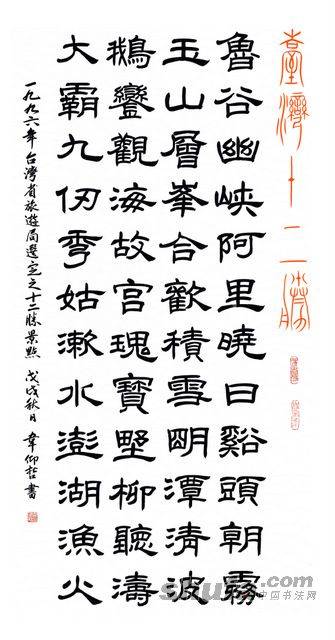 臺灣十二勝
魯谷幽峽阿里曉日谿頭朝霧
玉山層峯合歡積雪眀潭清波
鵝鑾觀海故宮瑰寶野柳聽濤
大霸九仞秀姑漱水澎湖漁火
一九九六年台灣省旅遊局選定之十二勝景點 戊戌秋日 韋仰哲書
中国书法网